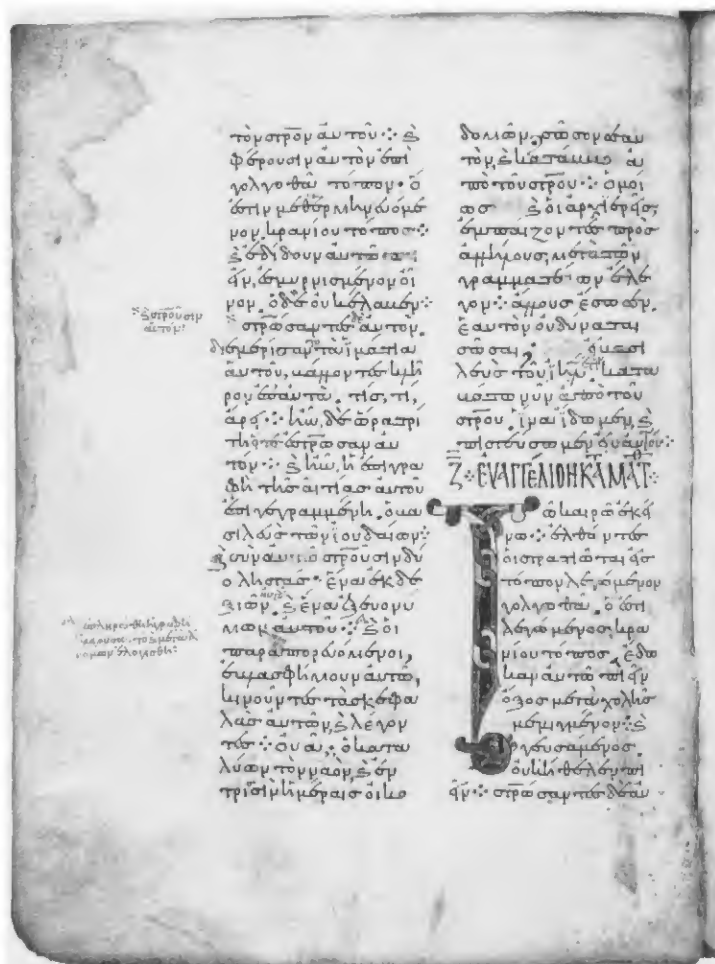 τὸν στρο̅ν αὐτοῦ ⁘ ϗ
φέρουσιν αὐτὸν ἐπὶ
γολγοθᾶ τόπον· ὅ
ἐστιν μεθερμηνευόμε
νον, κρανίου τόπος ⁘
ϗ ἐδίδουν αὐτῶ πι
εῖν, ἐσμυρνισμένον οἶ
νον. ὁ δὲ οὐκ ἔλαβεν ⁘
στρώ̅σαντες δὲ αὐτὸν.
διεμέρισαν τὰ ἱμάτια
αὐτοῦ, βάλλοντες κλῆ
ρον ἐπ' αὐτὰ. τίς, τί,
ἄρη· ἦν, δὲ ὥρα τρί
τη ὅτε ἐστρω̅σαν αὐ
τόν ⁘ ϗ ἦν, ἡ ἐπιγρα
φὴ τῆς αἰτίας αὐτοῦ
ἐπιγεγραμμένη. ὁ βα
σιλεὺς τῶν ἰουδαίων ⁘
ϗ σὺν αὐτῶ στρο̅ῦσιν δύ
ο ληστάς· ἕνα ἐκ δε
ξιῶν αὐτοῦ, ϗ ἕνα ἐξ εὐωνύ
μων αὐτοῦ ⁘ ϗ οἱ
παραπορευόμενοι,
ἐβλασφήμουν αὐτῶ,
κινοῦντες τὰς κεφα
λὰς αὐτῶν, ϗ λέγον
τες ⁘ οὐᾶ, ὁ κατα
λύων τὸν ναὸν, ϗ ἐν
τρισὶν ἡμέραις οἰκο
ϗ στρο̅ῦσιν
αὐτόν ⁘
ἐπληρώθη ἡ γραφὴ
ἡ λέγουσα· ϗ μετὰ
ἀνόμων ἐλογίσθη ⁘
δομῶν, σῶσον σεαυ
τὸν, ϗ κατάβα ἀ
πὸ τοῦ στρο̅υ ⁘ ὁμοί
ως ϗ οἱ ἀρχιερεῖς,
ἐμπαίζοντες πρὸς
ἀλλήλους, μετὰ τῶν
γραμματέων ἔλε
γον ⁘ ἄλλους ἔσωσεν,
ἑαυτὸν οὐ δύναται
σῶσαι, βασι
λεὺς τοῦ ιη̅λ κατα
βάτω νῦν ἀπὸ τοῦ
στρο̅υ. ἵνα ἴδωμεν, ϗ
πιστεύσωμεν αὐτῶ ⁘
Ζ̅ ⁘ ΕΥΑΓΓΕΛΙΟΝ ΚΑ ΜΑΤ ⁘
Τῶ καιρῶ ἐκεί
νω ⁘ ἐλθόντες
οἱ στρατιῶται εἰς
τόπον λεγόμενον
γολγοθᾶ. ὅ ἐστι
λεγόμενος, κρα
νίου τόπος, ἔδω
καν αὐτῶ πιεῖν
ὄξος μετὰ χολῆς
μεμιγμένον ⁘ ϗ
γευσάμενος
οὐκ ἤθελεν πι
εῖν ⁘ στρώ̅σαντες δὲ αὐ